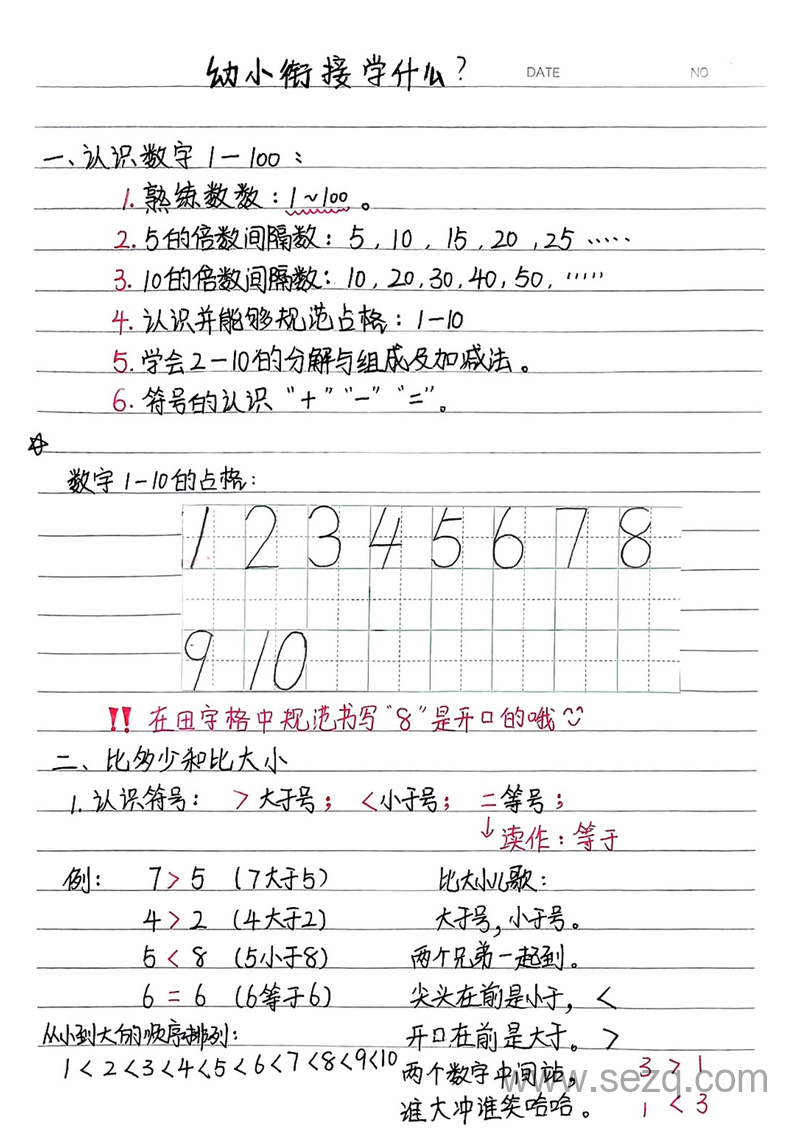 幼小衔接学什么?
DATE
NO
一、认识数字1—100:
1. 熟练数数:1~100。
2. 5的倍数间隔数:5,10,15,20,25……
3. 10的倍数间隔数:10,20,30,40,50,……
4. 认识并能够规范占格:1—10
5. 学会2—10的分解与组成及加减法。
6. 符号的认识“+”“-”“=”。
☆
数字1—10的占格:
1 2 3 4 5 6 7 8
9 10
!! 在田字格中规范书写“8”是开口的哦
二、比多少和比大小
1. 认识符号: > 大于号; <小于号; = 等号;
↓读作:等于
例: 7 > 5 (7大于5)
4 > 2 (4大于2)
5 < 8 (5小于8)
6 = 6 (6等于6)
从小到大的顺序排列:
1<2<3<4<5<6<7<8<9<10
比大小儿歌:
大于号,小于号。
两个兄弟一起到。
尖头在前是小于, <
开口在前是大于。 >
两个数字中间站, 3 > 1
谁大冲谁笑哈哈。 1 < 3
www.sezq.com